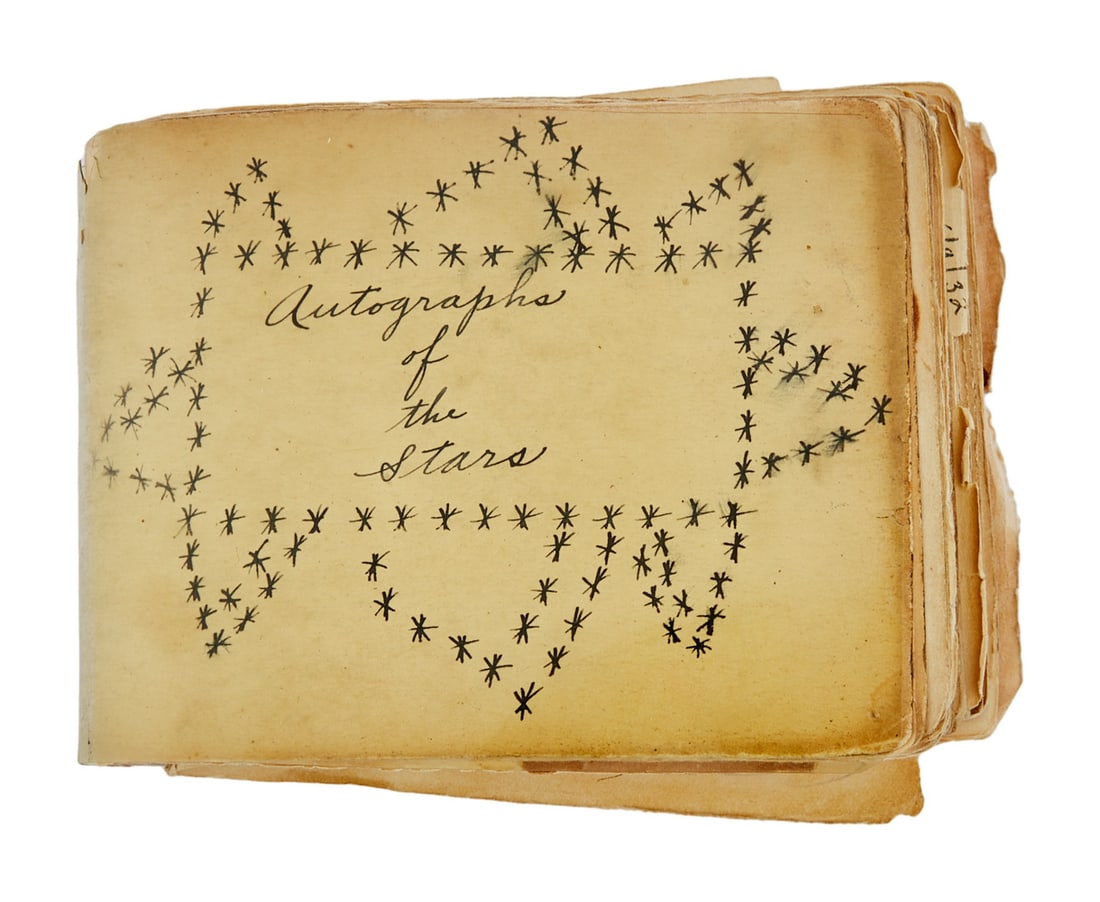 Autographs
of
the
Stars